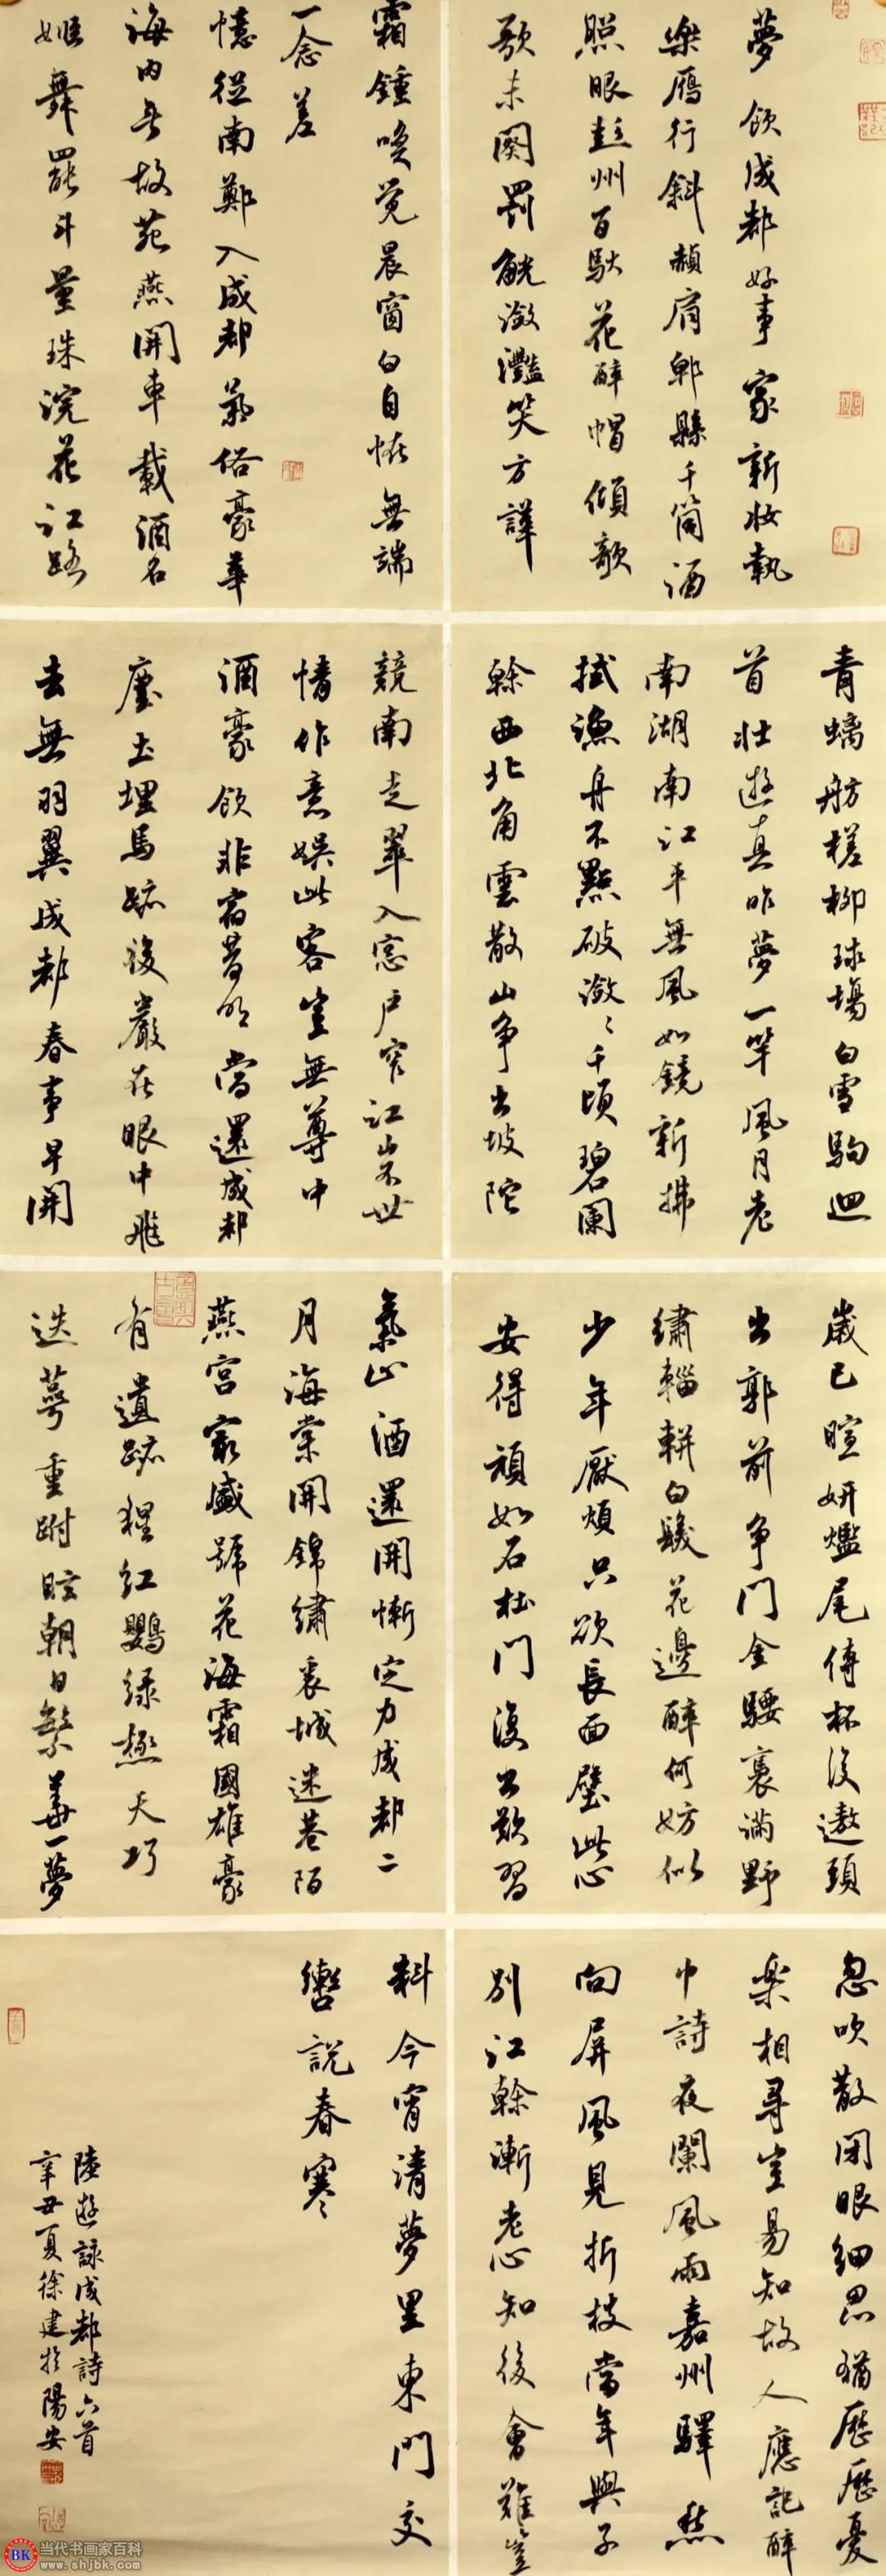 夢飲成都好事家新妝執
樂雁行斜赬肩郫縣千筒酒
照眼彭州百馱花醉帽傾欹
歌未闋罰觥瀲灩笑方譁
霜鍾喚覺晨窗白自怪無端
一念差
憶從南鄭入成都氣俗豪華
海內無故苑燕開車載酒名
姬舞罷斗量珠浣花江路
青螭舫槎柳球場白雪駒迴
首壯遊真昨夢一竿風月老
南湖南江平無風如鏡新拂
拭漁舟不點破瀲〻千頃碧闌
幹西北角雲散山爭出坡陀
競南走翠入窓戶窄江山不世
情作意娛此客豈無尊中
酒豪飲非宿昔明當還成都
塵土埋馬跡後巖在眼中飛
去無羽翼成都春事早開
歲已暄妍爁尾傳杯後遨頭
出郭前爭門金騕裹滿野
繡輜軿白髮花邊醉何妨似
少年厭煩只欲長面壁此心
安得頑如石杜門復出歎習
氣止酒還開慚定力成都二
月海棠開錦繡裹城迷巷陌
燕宮最盛號花海霜國雄豪
有遺跡猩紅鸚綠極天巧
迭萼重跗眩朝日繁華一夢
忽吹散閉眼細思猶歷歷憂
樂相尋豈易知故人應記醉
中詩夜闌風雨嘉州驛愁
向屏風見折枝當年與子
別江幹漸老心知後會難豈
料今宵清夢里東門交
轡說春寒
陸遊詠成都詩六首
辛丑夏徐建於陽安
BK 当代书画家百科
www.shjbk.com